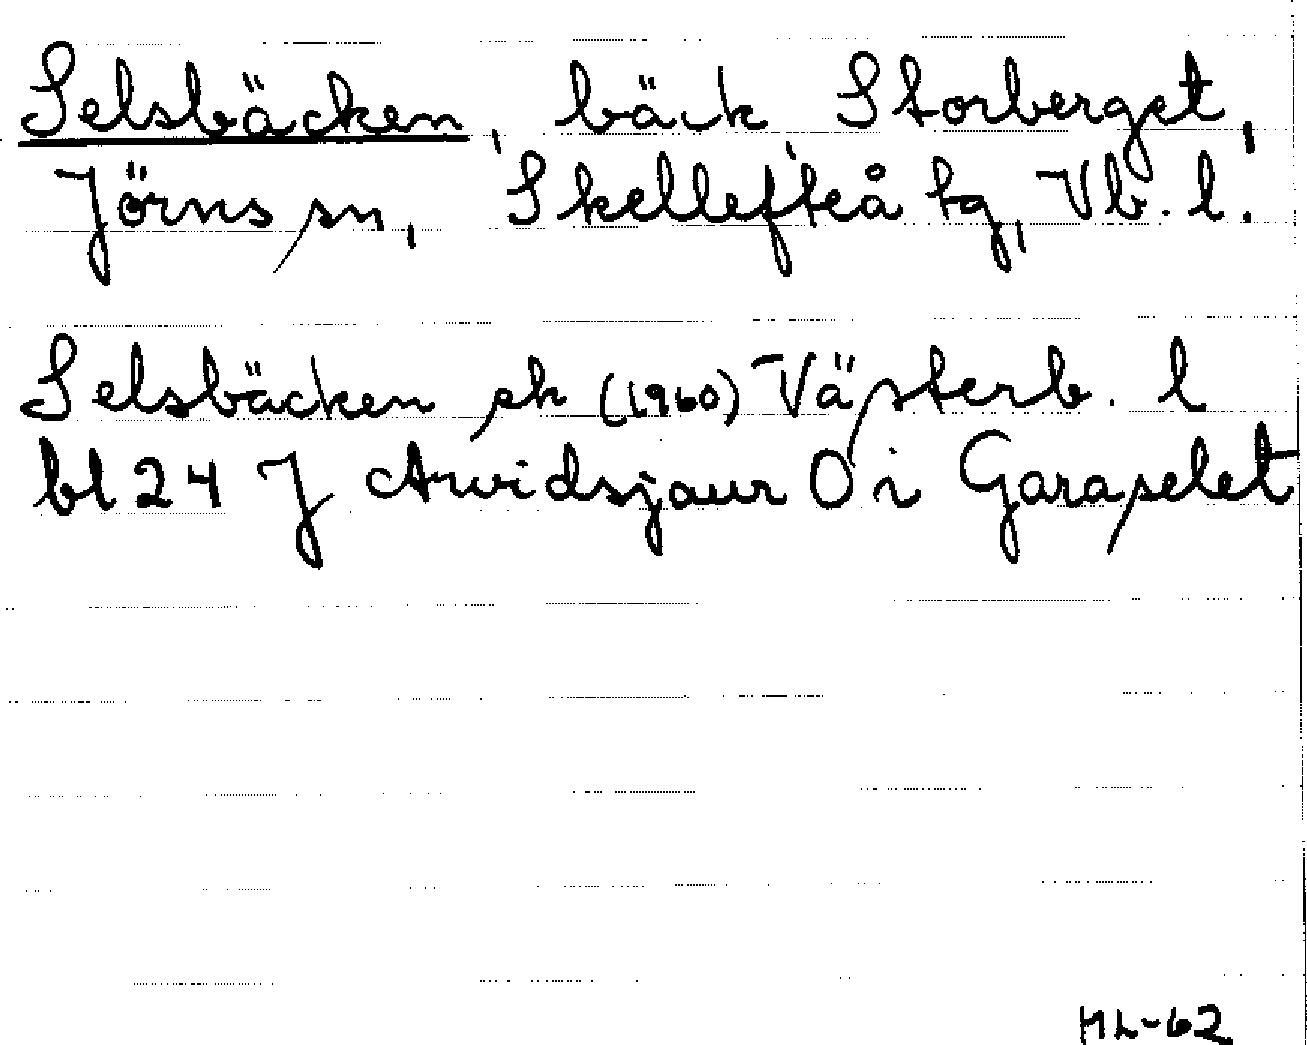 Selsbäcken, bäck Storberget,
Jörns sn, Skellefteå tg, Vb. l.
Selsbäcken ek (1960) Västerb. l
bl 24 J Arvidsjaur O i Garaselet
HL-62